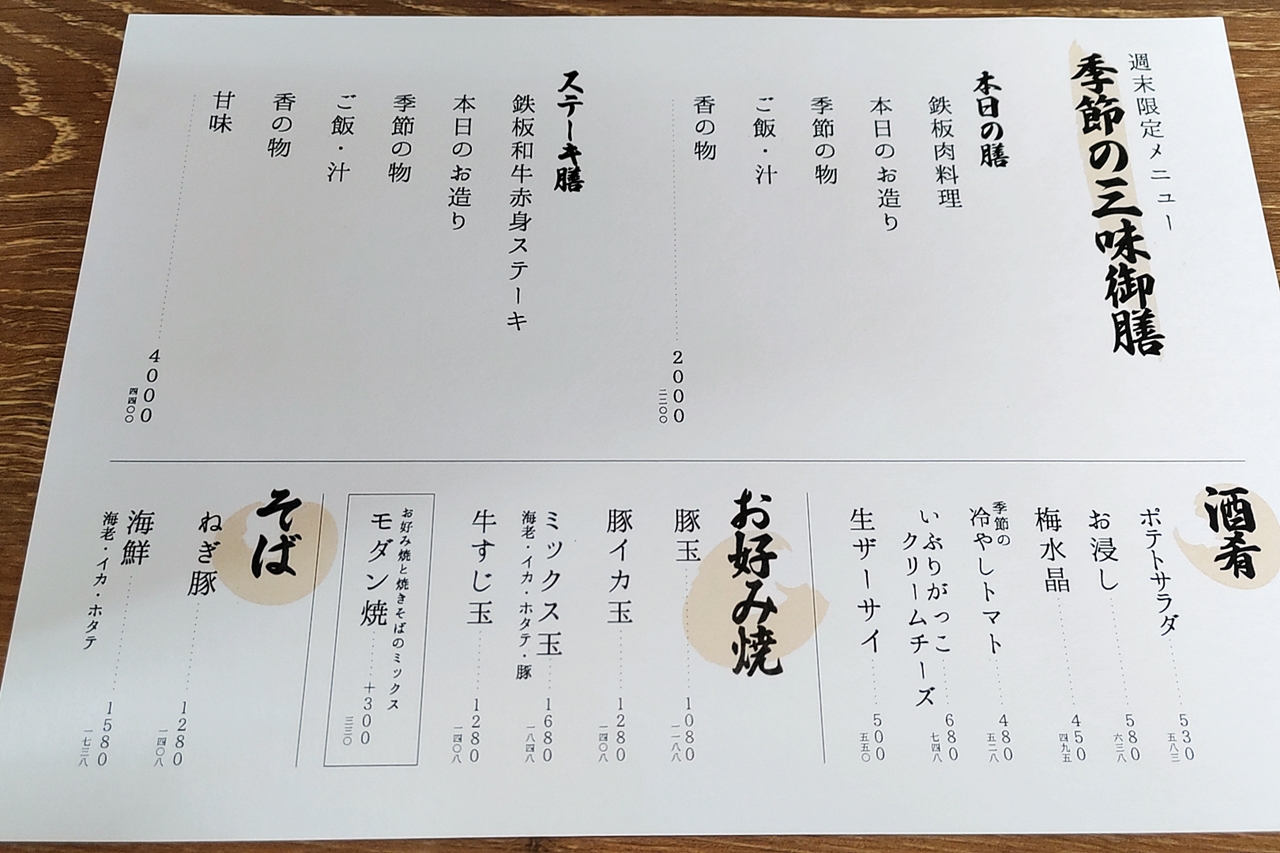 週末限定メニュー
季節の三味御膳
本日の膳
鉄板肉料理
本日のお造り
季節の物
ご飯・汁
香の物
2000
二二〇〇
ステーキ膳
鉄板和牛赤身ステーキ
本日のお造り
季節の物
ご飯・汁
香の物
甘味
4000
四四〇〇
酒肴
ポテトサラダ
530
五八三
お浸し
580
六三八
梅水晶
450
四九五
季節の
冷やしトマト
480
五二八
いぶりがっこ
クリームチーズ
680
七四八
生ザーサイ
500
五五〇
お好み焼
豚玉
1080
一一八八
豚イカ玉
1280
一四〇八
ミックス玉
海老・イカ・ホタテ・豚
1680
一八四八
牛すじ玉
1280
一四〇八
お好み焼と焼きそばのミックス
モダン焼
+300
三三〇
そば
ねぎ豚
1280
一四〇八
海鮮
海老・イカ・ホタテ
1580
一七三八